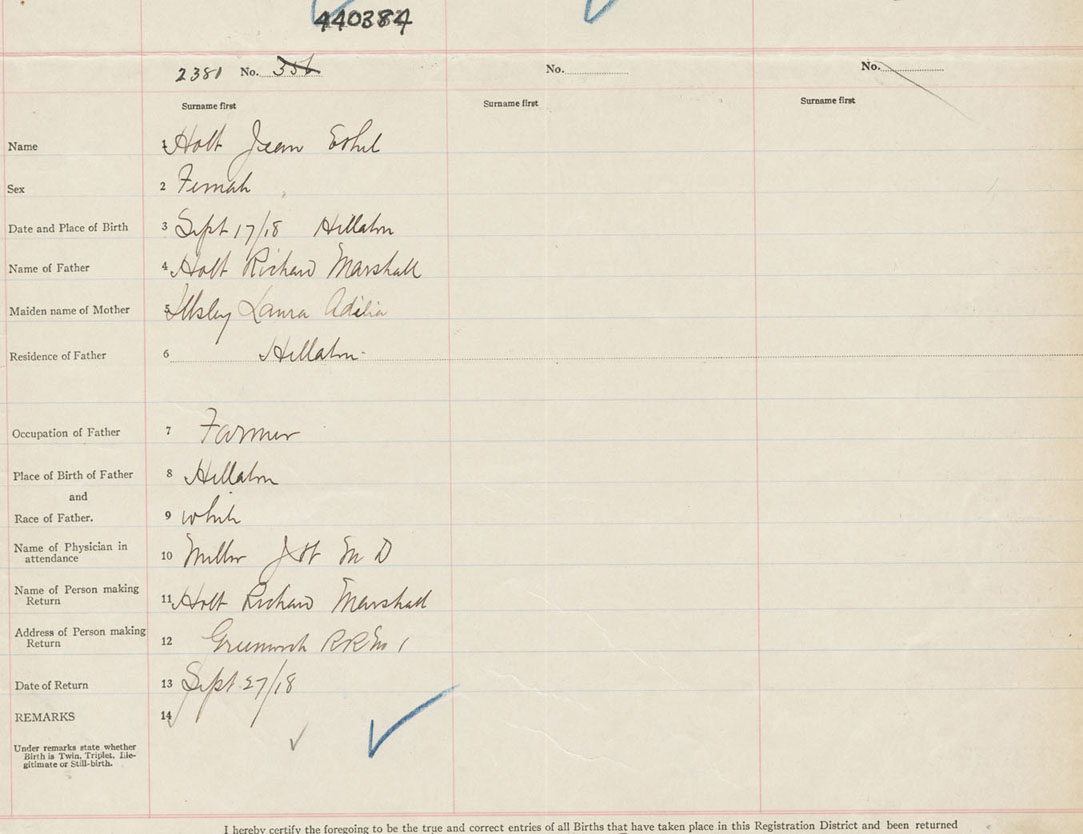 440384
2381 No. 356 No. No.
Surname first Surname first Surname first
Name 1 Holt Jean Ethel
Sex 2 Female
Date and Place of Birth 3 Sept 17/18 Hillaton
Name of Father 4 Holt Richard Marshall
Maiden name of Mother 5 Illsley Laura Adilia
Residence of Father 6 Hillaton
Occupation of Father 7 Farmer
Place of Birth of Father 8 Hillaton
and
Race of Father. 9 white
Name of Physician in
attendance 10 Miller M D
Name of Person making
Return 11 Holt Richard Marshall
Address of Person making
Return 12 Greenwich RR No 1
Date of Return 13 Sept 27/18
REMARKS 14
Under remarks state whether
Birth is Twin, Triplet, Ille-
gitimate or Still-birth.
I hereby certify the foregoing to be the true and correct entries of all Births that have taken place in this Registration District and been returned